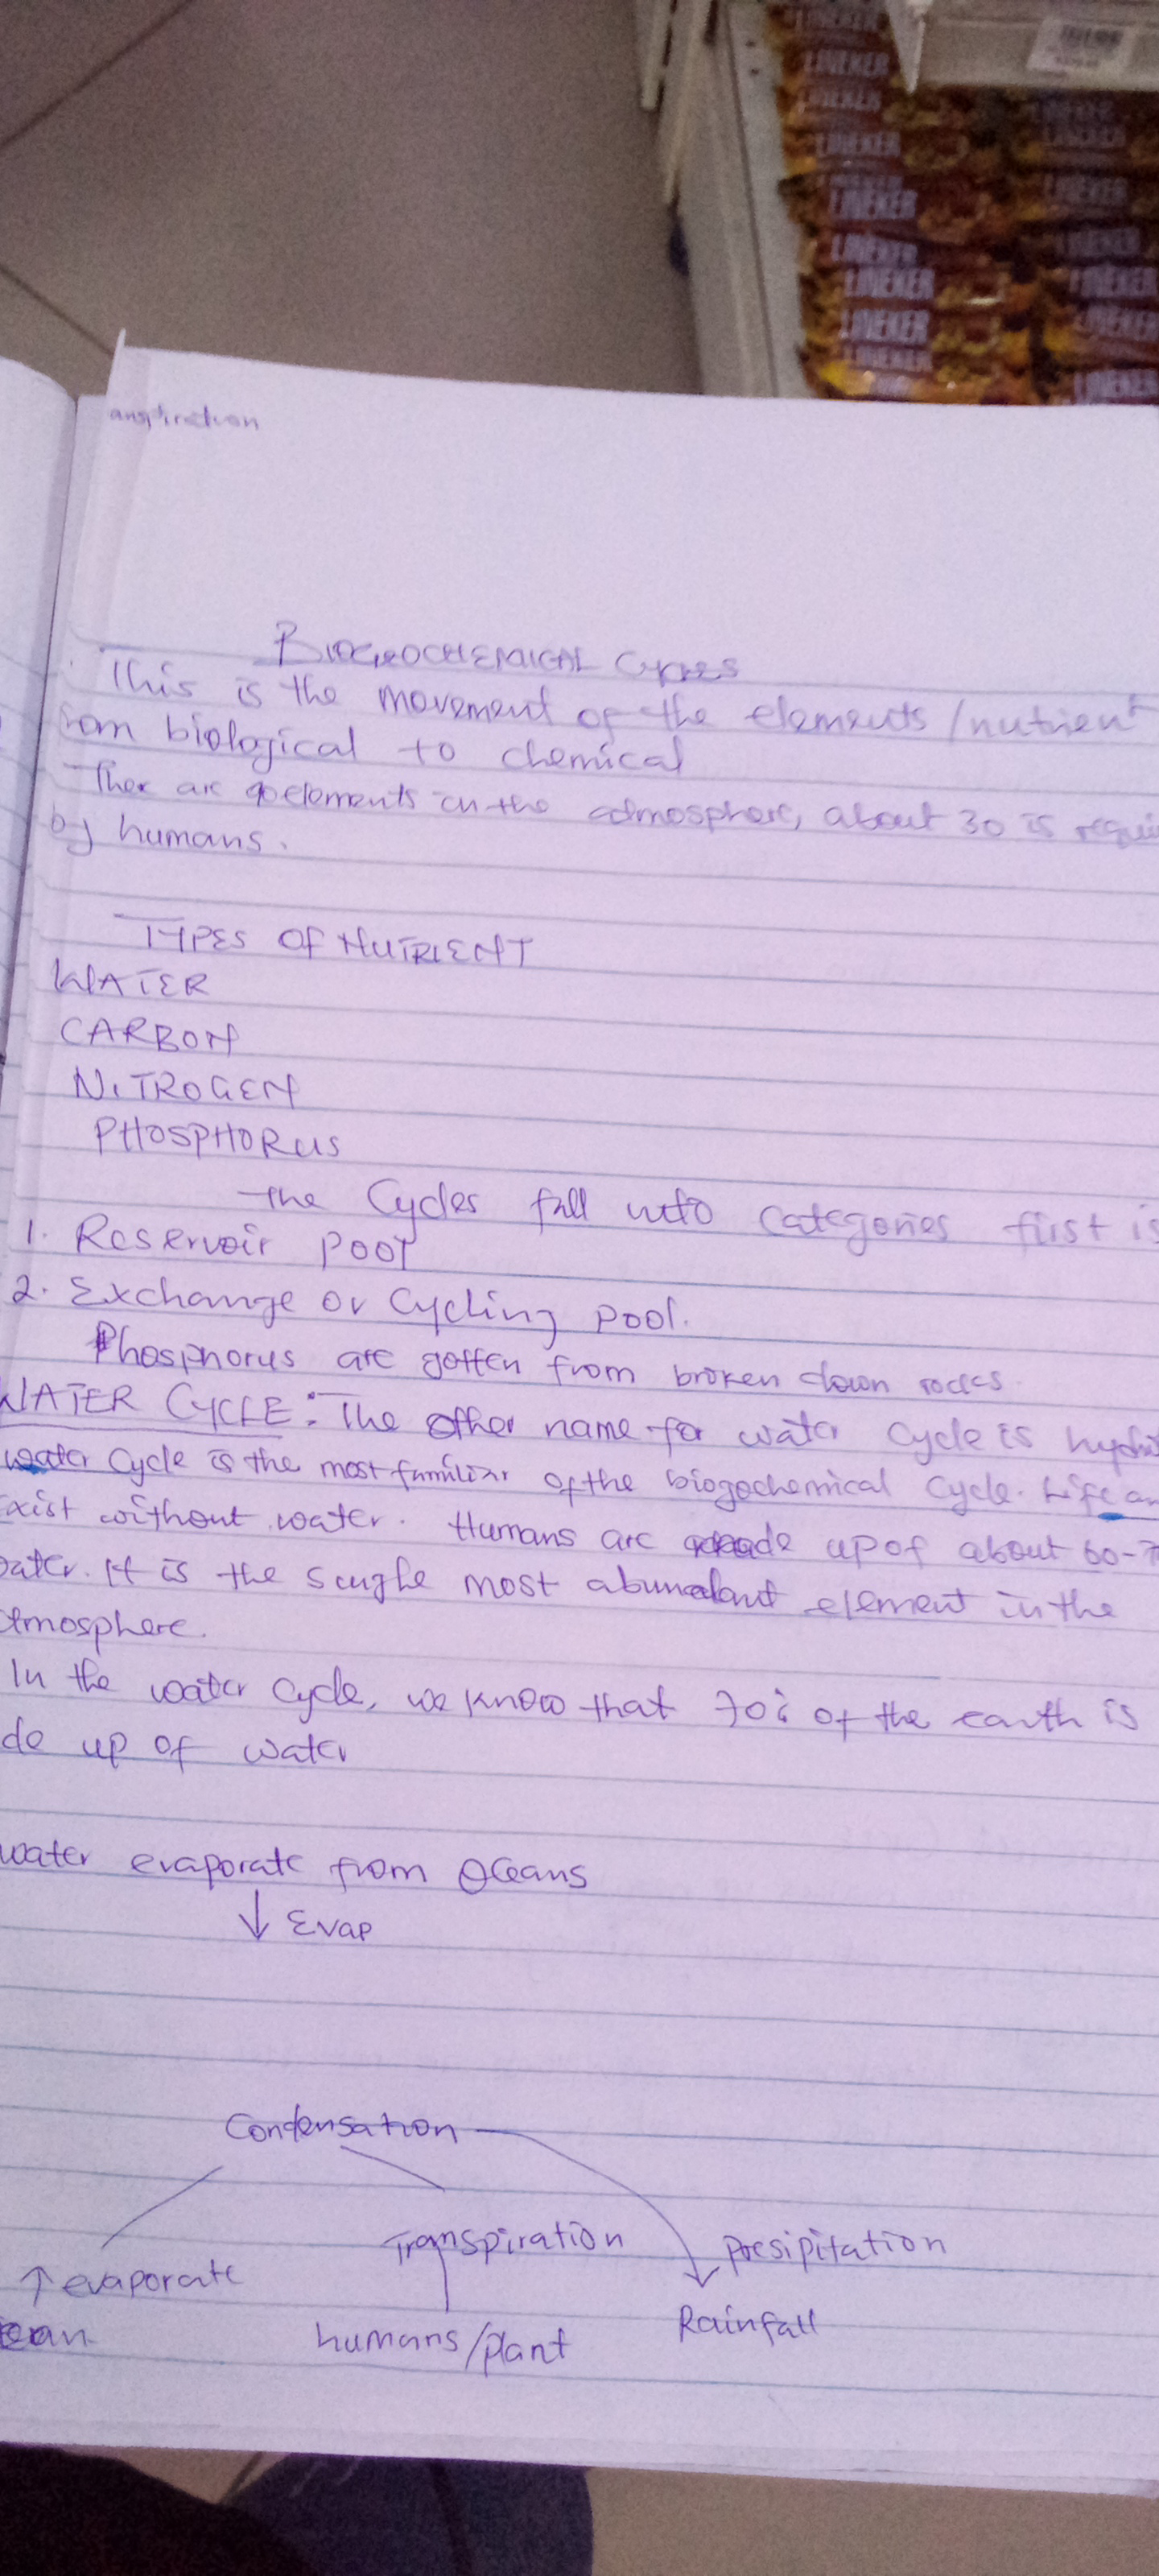 LINEKER
LINEKER
LINEKER
LINEKER
LINEKER
LINEKER
LINEKER
LINEKER
LINEKER
anspiration
BIOGEOCHEMICAL Cycles
This is the movement of the elements/nutrient
rom biological to chemical
Ther are elements in the admosphere, about 30 is requi
by humans.
TYPES OF NUTRIENT
WATER
CARBON
NITROGEN
PHOSPHORUS
The Cycles fall into categories first is
1. Reservoir pool
2. Exchange or Cycling pool.
Phosphorus are gotten from broken down rocks.
WATER CYCLE: The other name for water cycle is hyd
water Cycle is the most familiar of the biogochemical Cycle. Life an
exist without water. Humans are made up of about 60-7
ater. It is the single most abundant element in the
atmosphere.
In the water cycle, we know that 70% of the earth is
de up of water
water evaporate from Oceans
↓ Evap
Condensation
Transpiration Presipitation
↑ evaporate
ean humans/plant Rainfall